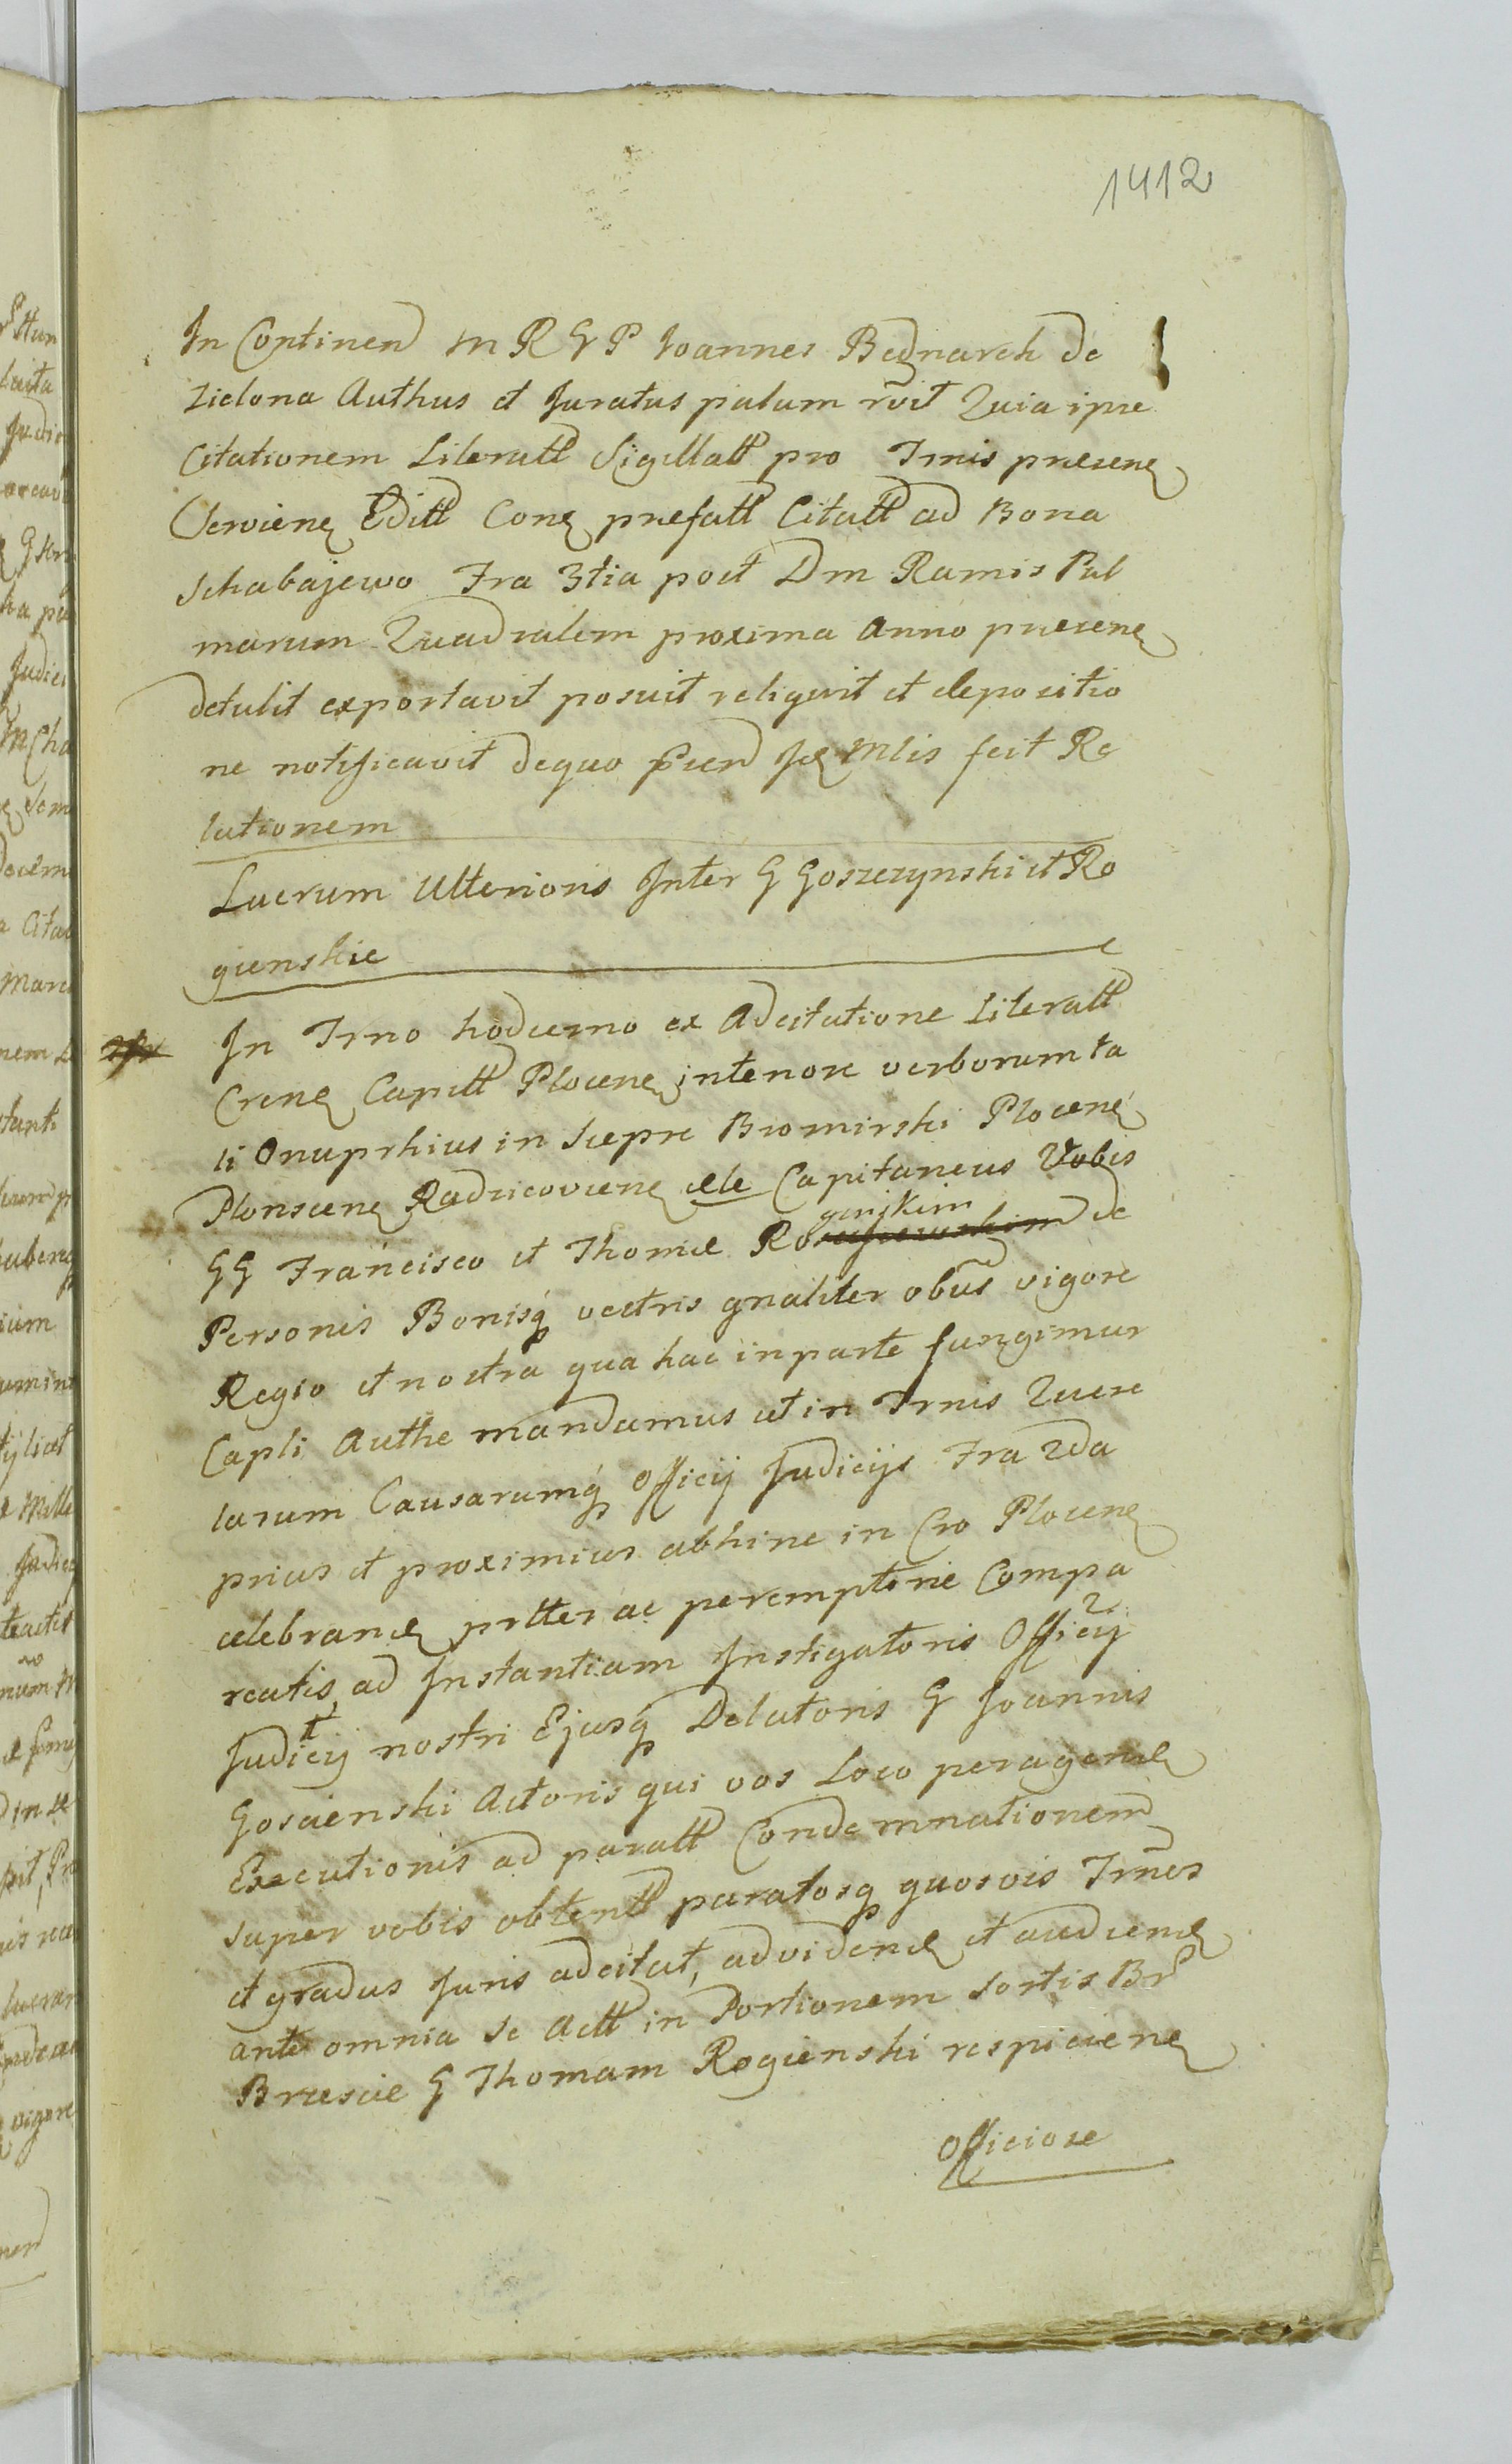 1412
In Continen M R G P Joannes Bednarek de
Zielona Authus et Juratus palam rvit Quia ipse
Citationem Literatt Sigillatt pro Trnis presenẹ
Servienẹ Editt Conẹ prefatt Citatt ad Bona
Schabajewo Fra 3tia post Dm Ramis Pal
marum Quadralem proxima Anno presenẹ
detulit exportavit posuit reliquit et depositio
ne notificavit dequo Mlis fecit Re
lationem
Lucrum Ulterioris Inter G Goszczynski et Ro
gienskie
In Trno hodierno ex Adcitatione Literatt
Crenẹ Capitt Plocenẹ intenore verborum ta
li Onuprhius in Sieprc Bromirski Plocenẹ
Plonscenẹ Radzicovienẹ ele Capitaneus Vobis
gienskim
GG Francisco et Thomæ Ro de
Personis Bonisq́ vestris gnaliter obũs vigore
Regio et nostra qua hac inparte fungimur
Capli Authe mandamus ut in Trnis Quere
larum Causarumq́ Officij Judicijs Fra 2da
prius et proximius abhinc in Cro Plocenẹ
celebranẹ prlter ac peremptorie Compa
reatis, ad Instantiam Instigatoris Officij
Judicij nostri Ejusq́ Delatoris G Joannis
Goscienski Actoris qui vos Loco peragenẹ
Executionis ad paratt Condemnationem
super vobis obtentt paratosq quosvis Trñes
et gradus Juris adcitat, advidenẹ et audienẹ
ante omnia se Actt in Portionem Sortis Br
Brzescie G Thomam Rogienski respicienẹ
Officiose